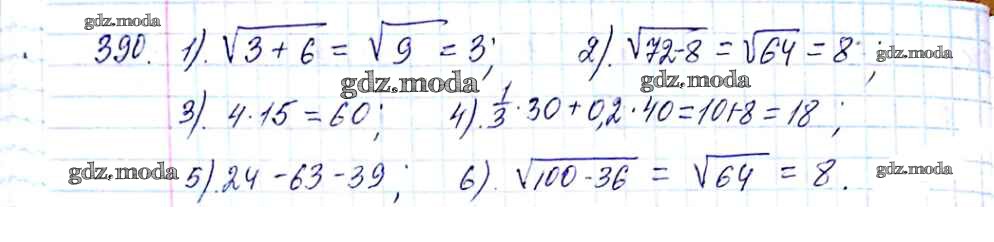 gdz.moda
390. 1). √3 + 6 = √9 = 3; 2). √72-8 = √64 = 8 ; gdz.moda
gdz.moda gdz.moda
3). 4 · 15 = 60 ; 4). 1/3 · 30 + 0,2 · 40 = 10 + 8 = 18 ;
gdz.moda 5). 24 - 63 - 39 ; 6). √100 - 36 = √64 = 8 . gdz.moda